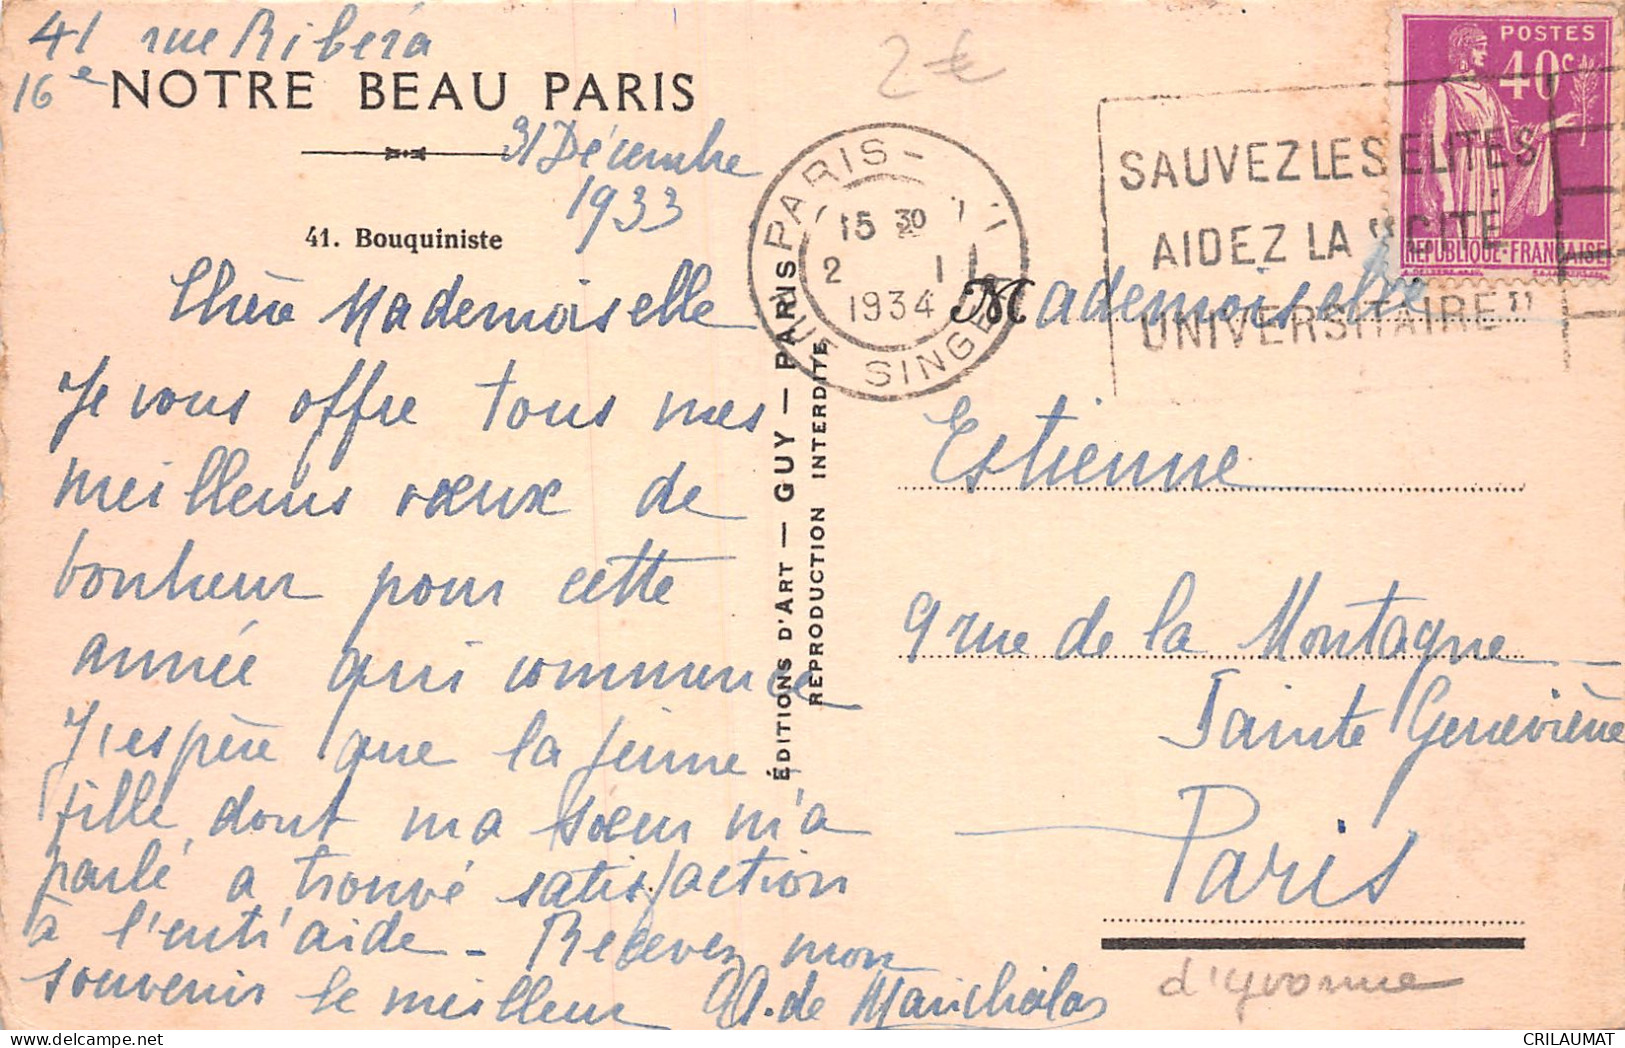 41 rue Ribéra
16e
NOTRE BEAU PARIS
31 Décembre
1933
41. Bouquiniste
Chère Mademoiselle
Je vous offre tous mes
meilleurs vœux de
bonheur pour cette
année qui commence
J'espère que la jeune
fille dont ma sœur m'a
parlé a trouvé satisfaction
à l'entr'aide - Recevez mon
souvenir le meilleur
de
ÉDITIONS D'ART — GUY — PARIS
REPRODUCTION INTERDITE
2 €
PARIS
15 30
2 I
1934
RUE SINGER
SAUVEZ LES ELITES
AIDEZ LA "CITE
UNIVERSITAIRE"
POSTES
40c
REPUBLIQUE-FRANÇAISE
Mademoiselle
Estienne
9 rue de la Montagne
Sainte Geneviève
Paris
d'Yvonne
CRILAUMAT